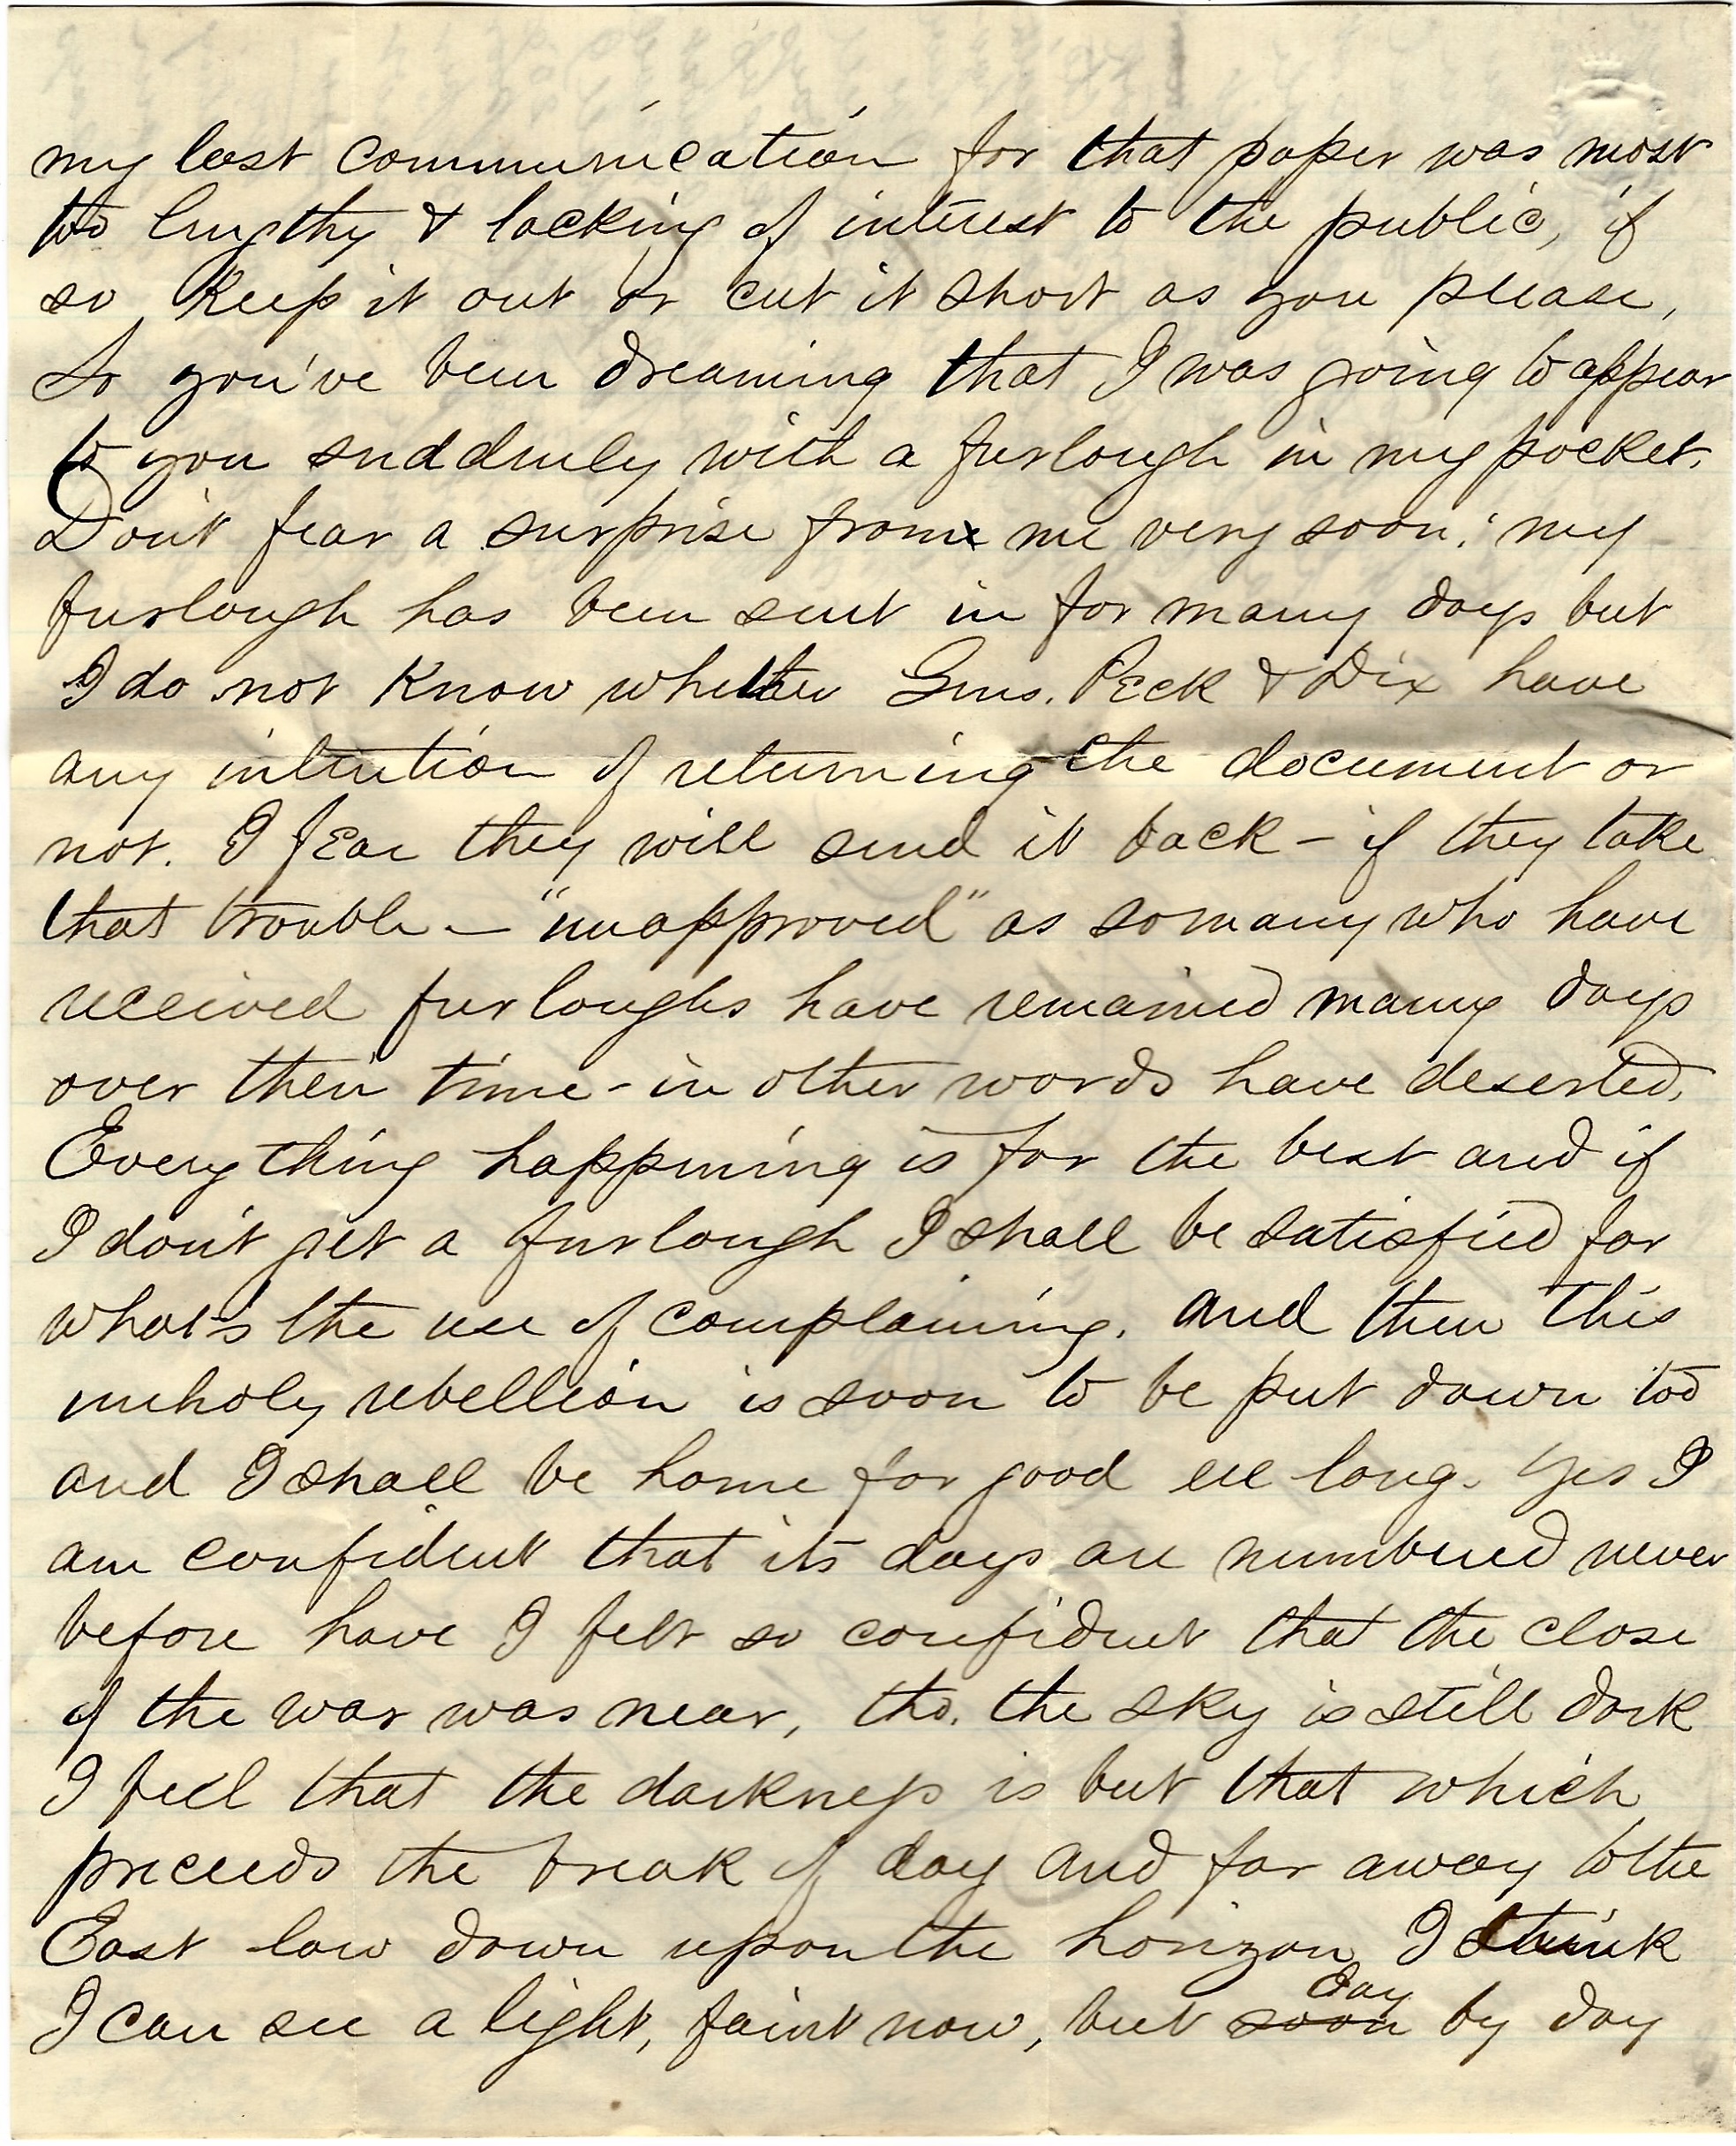 my last communication for that paper was most
too lengthy & lacking of interest to the public, if
so keep it out or cut it short as you please,
So you've been dreaming that I was going to appear
to you suddenly with a furlough in my pocket.
Don't fear a surprise from me very soon; my
furlough has been sent in for many days but
I do not know whether Gens. Peck & Dix have
any intention of returning the document or
not. I fear they will send it back – if they take
that trouble – "unapproved" as so many who have
received furloughs have remained many days
over their time – in other words have deserted.
Every thing happening is for the best and if
I don't get a furlough I shall be satisfied for
what's the use of complaining. and then this
unholy rebellion is soon to be put down too
and I shall be home for good ere long. Yes I
am confident that its days are numbered never
before have I felt so confident that the close
of the war was near, tho. the sky is still dark
I feel that the darkness is but that which
preceeds the break of day and far away to the
East low down upon the horizon I think
I can see a light, faint now, but soon day by day